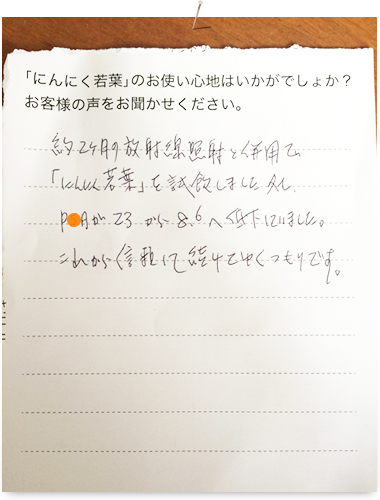 「にんにく若葉」のお使い心地はいかがでしょか？
お客様の声をお聞かせください。
約2ヶ月の放射線照射と併用で
「にんにく若葉」を試飲しました所、
P Aが23から8.6へ低下していました。
これから信頼して続けてゆくつもりです。